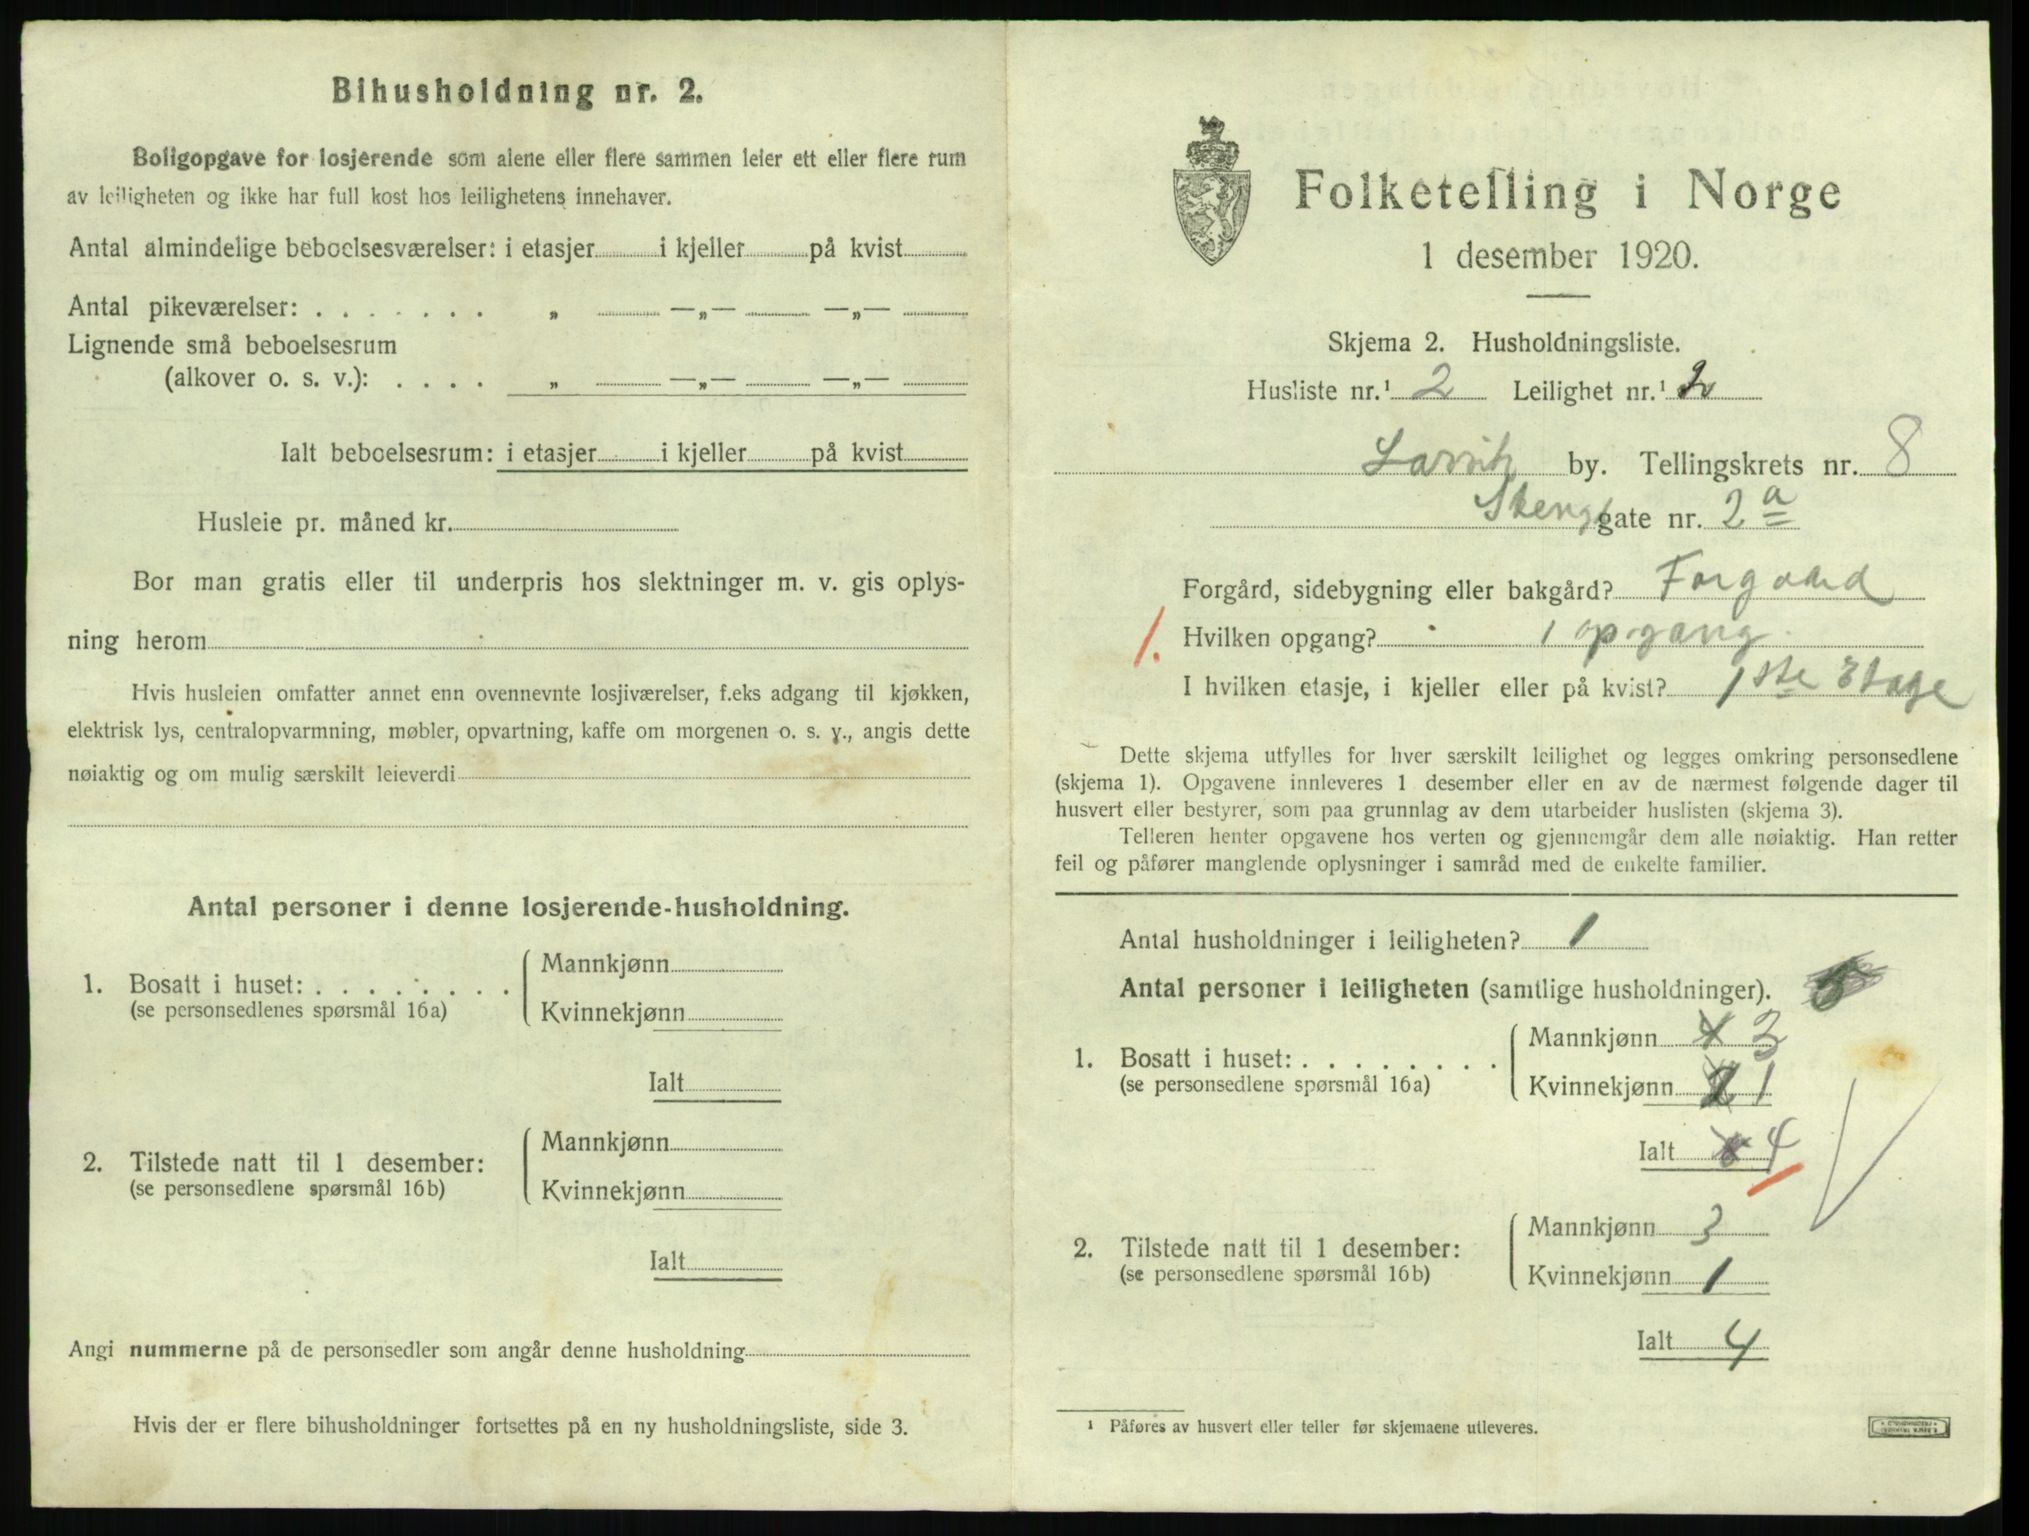 Bihusholdning nr. 2.
Boligopgave for losjerende som alene eller flere sammen leier ett eller flere rum
av leiligheten og ikke har full kost hos leilighetens innehaver.
Antal almindelige beboelsesværelser: i etasjer i kjeller på kvist
Antal pikeværelser: . . . . . . . „ —„— —„—
Lignende små beboelsesrum
(alkover o. s. v.): . . . . „ —„— —„—
Ialt beboelsesrum: i etasjer i kjeller på kvist
Husleie pr. måned kr.
Bor man gratis eller til underpris hos slektninger m. v. gis oplys-
ning herom
Hvis husleien omfatter annet enn ovennevnte losjiværelser, f.eks adgang til kjøkken,
elektrisk lys, centralopvarmning, møbler, opvartning, kaffe om morgenen o. s. v., angis dette
nøiaktig og om mulig særskilt leieverdi
Antal personer i denne losjerende-husholdning.
1. Bosatt i huset: . . . . . . . . Mannkjønn
(se personsedlenes spørsmål 16a) Kvinnekjønn
Ialt
2. Tilstede natt til 1 desember: Mannkjønn
(se personsedlene spørsmål 16b) Kvinnekjønn
Ialt
Angi nummerne på de personsedler som angår denne husholdning
Hvis der er flere bihusholdninger fortsettes på en ny husholdningsliste, side 3.
Folketelling i Norge
1 desember 1920.
Skjema 2. Husholdningsliste.
Husliste nr.¹ 2 Leilighet nr.¹ 2
Larvik by. Tellingskrets nr. 8
Steng gate nr. 2a
Forgård, sidebygning eller bakgård? Forgaard
1. Hvilken opgang? 1 opgang
I hvilken etasje, i kjeller eller på kvist? 1ste Etage
Dette skjema utfylles for hver særskilt leilighet og legges omkring personsedlene
(skjema 1). Opgavene innleveres 1 desember eller en av de nærmest følgende dager til
husvert eller bestyrer, som paa grunnlag av dem utarbeider huslisten (skjema 3).
Telleren henter opgavene hos verten og gjennemgår dem alle nøiaktig. Han retter
feil og påfører manglende oplysninger i samråd med de enkelte familier.
Antal husholdninger i leiligheten? 1
Antal personer i leiligheten (samtlige husholdninger).
1. Bosatt i huset: . . . . . . . . Mannkjønn 4 3
(se personsedlene spørsmål 16a) Kvinnekjønn 2 1
Ialt 4
2. Tilstede natt til 1 desember: Mannkjønn 3
(se personsedlene spørsmål 16b) Kvinnekjønn 1
Ialt 4
¹ Påføres av husvert eller teller før skjemaene utleveres.